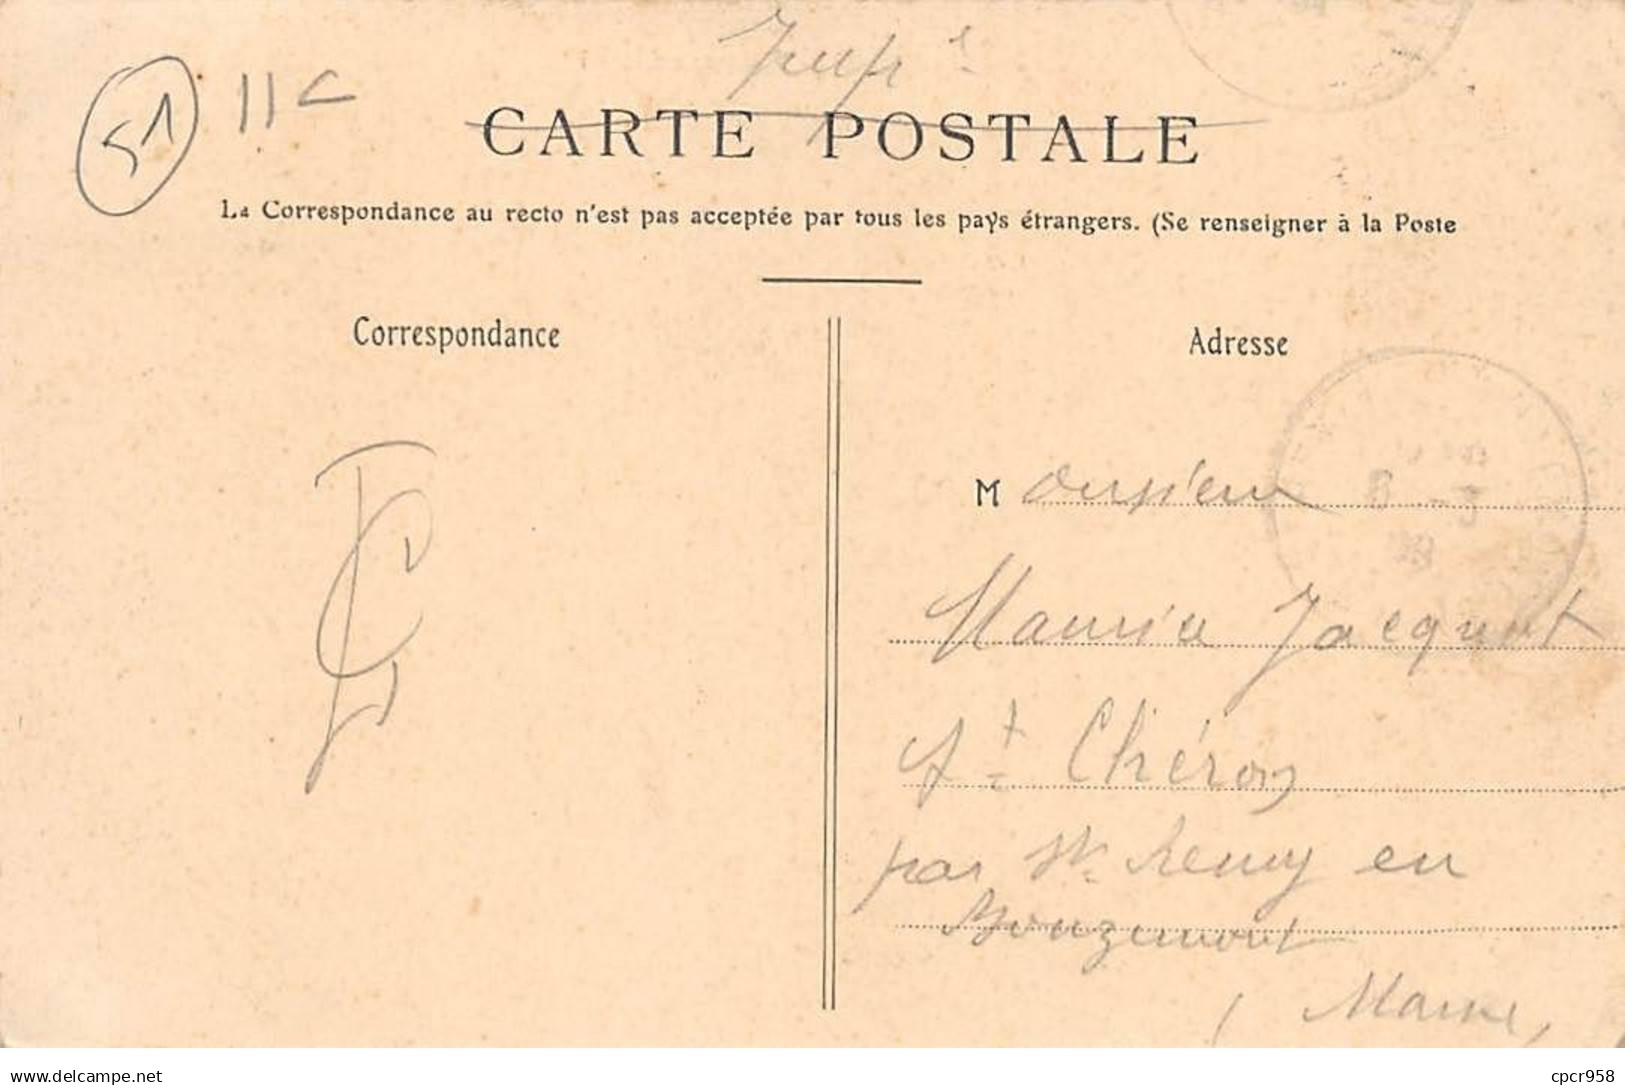 51
11 c
CARTE POSTALE
La Correspondance au recto n'est pas acceptée par tous les pays étrangers. (Se renseigner à la Poste
Correspondance
Adresse
Monsieur
Maurice Jacquot
St Chéron
par St Remy en
Bouzemont
(Marne)
www.delcampe.net
cpcr958